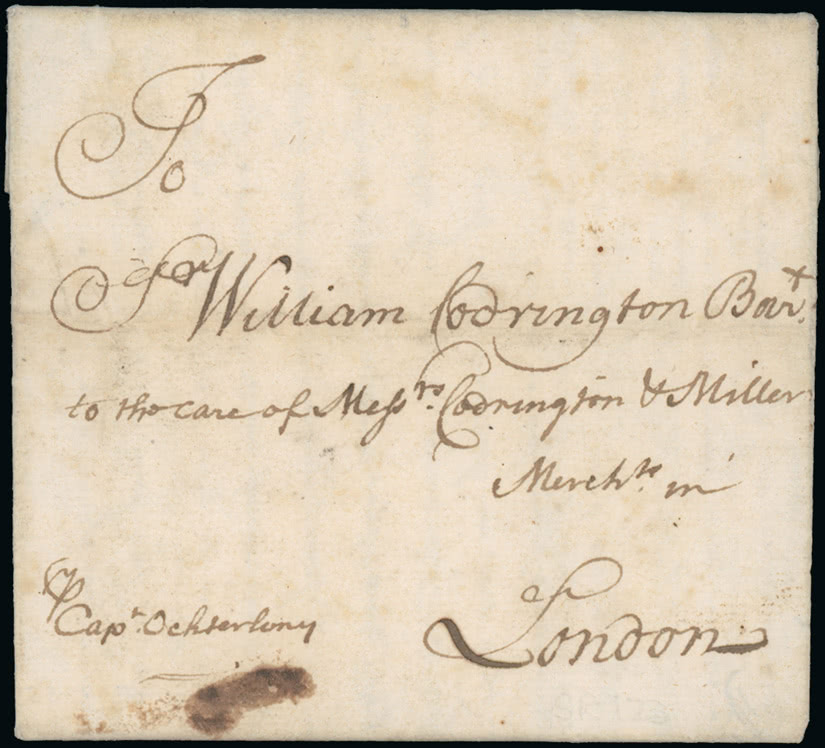 To
Sr William Codrington Bart.
to the care of Messrs. Codrington & Miller
Merchts. in
London
Ꝑ Capt. Ochterlony